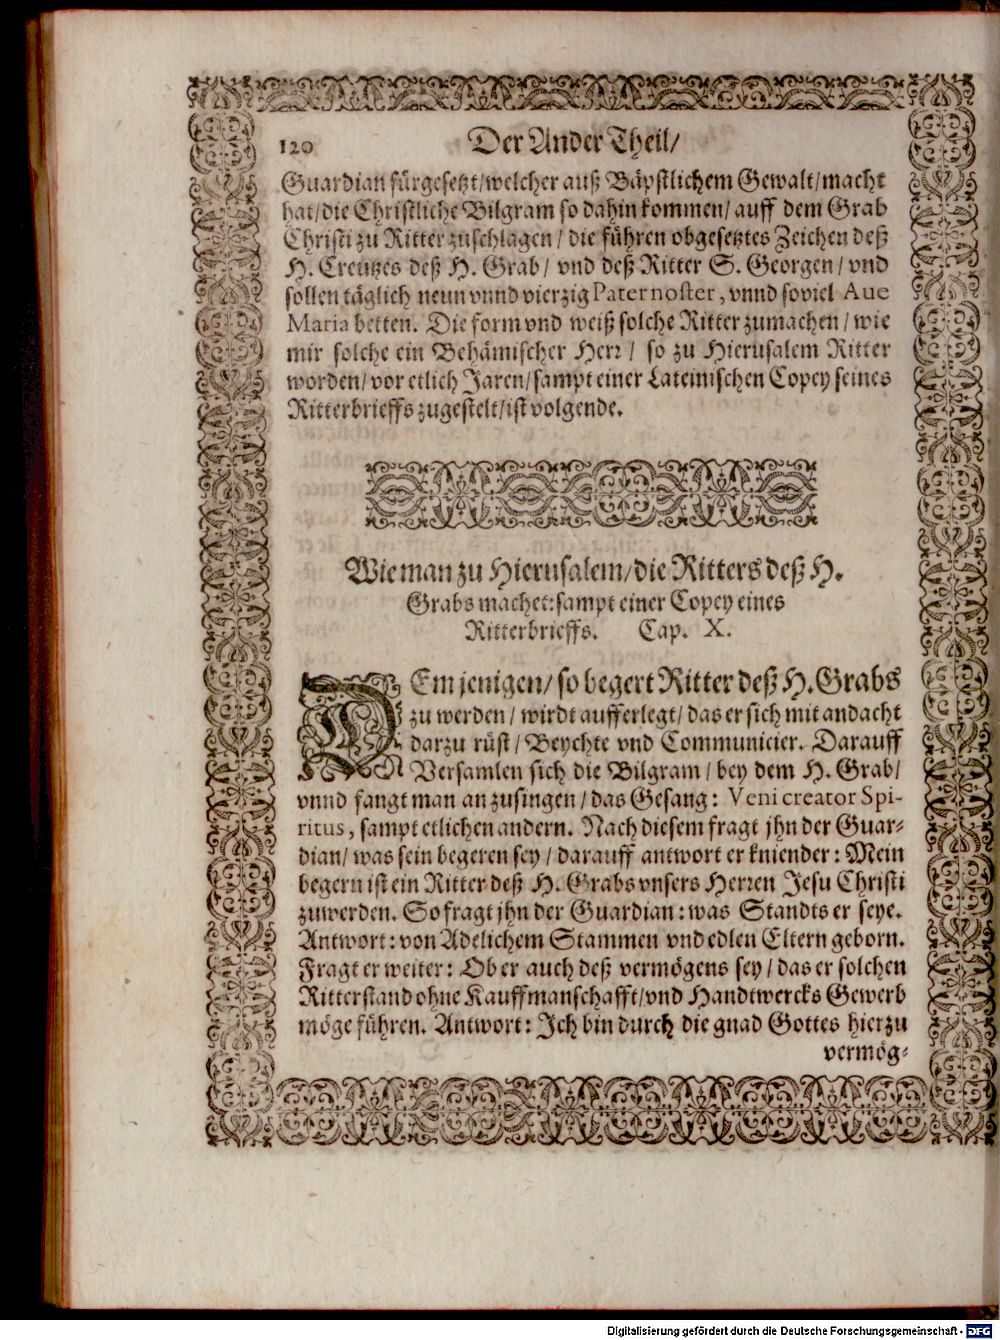 120 Der Ander Theil/
Guardian fürgesetzt/welcher auß Bäpstlichem Gewalt/macht
hat/die Christliche Bilgram so dahin kommen/ auff dem Grab
Christi zu Ritter zuschlagen / die führen obgesetztes Zeichen deß
H. Creutzes deß H. Grab/ vnd deß Ritter S. Georgen/ vnd
sollen täglich neun vnnd vierzig Pater noster, vnnd soviel Aue
Maria betten. Die form vnd weiß solche Ritter zumachen/ wie
mir solche ein Behämischer Herr/ so zu Hierusalem Ritter
worden/ vor etlich Jaren/sampt einer Lateinischen Copey seines
Ritterbrieffs zugestelt/ist volgende.
Wie man zu Hierusalem/die Ritters deß H.
Grabs machet: sampt einer Copey eines
Ritterbrieffs. Cap. X.
DEm jenigen/ so begert Ritter deß H. Grabs
zu werden/ wirdt aufferlegt/ das er sich mit andacht
darzu rüst/ Beychte vnd Communicier. Darauff
Versamlen sich die Bilgram/ bey dem H. Grab/
vnnd fangt man an zusingen/ das Gesang: Veni creator Spi-
ritus, sampt etlichen andern. Nach diesem fragt jhn der Guar-
dian/ was sein begeren sey/ darauff antwort er kniender: Mein
begern ist ein Ritter deß H. Grabs vnsers Herren Jesu Christi
zuwerden. So fragt jhn der Guardian: was Standts er seye.
Antwort: von Adelichem Stammen vnd edlen Eltern geborn.
Fragt er weiter: Ob er auch deß vermögens sey/ das er solchen
Ritterstand ohne Kauffmanschafft/vnd Handtwercks Gewerb
möge führen. Antwort: Ich bin durch die gnad Gottes hierzu
vermög-
Digitalisierung gefördert durch die Deutsche Forschungsgemeinschaft - DFG